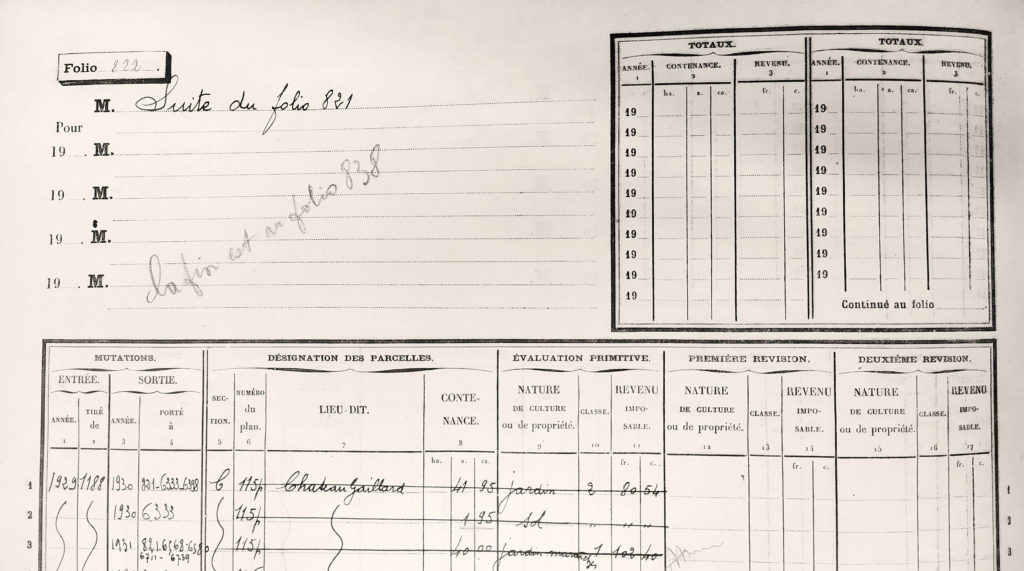 Folio 822
M. Suite du folio 821
Pour
19 M.
19 M.
19 M.
19 M.
la fin est au folio 838
TOTAUX. TOTAUX.
ANNÉE. CONTENANCE. REVENU. ANNÉE. CONTENANCE. REVENU.
1 2 3 1 2 3
ha. a. ca. fr. c. ha. a. ca. fr. c.
19 19
19 19
19 19
19 19
19 19
19 19
19 19
19 19
19 19
19 Continué au folio
MUTATIONS. DÉSIGNATION DES PARCELLES. ÉVALUATION PRIMITIVE. PREMIÈRE REVISION. DEUXIÈME REVISION.
ENTRÉE. SORTIE. SEC- NUMÉRO LIEU-DIT. CONTE- NATURE REVENU NATURE REVENU NATURE REVENU
ANNÉE. TIRÉ ANNÉE. PORTÉ TION. du NANCE. DE CULTURE CLASSE. IMPO- DE CULTURE CLASSE. IMPO- DE CULTURE CLASSE. IMPO-
de à plan. ou de propriété. SABLE. ou de propriété. SABLE. ou de propriété. SABLE.
1 2 3 4 5 6 7 8 9 10 11 12 13 14 15 16 17
ha. a. ca. fr. c. fr. c. fr. c.
1 1929 1188 1930 821-6333-6398 C 115p Chateau Gaillard 41 95 jardin 2 80 54 1
2 1930 6333 115p 1 95 sol " " " 2
3 1931 115p 40 00 jardin 1 102 40 3
6711 - 6739